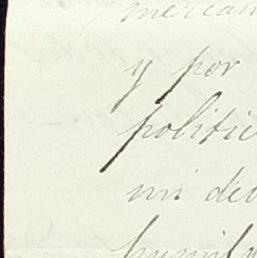 mercan
y por
politic
mi de